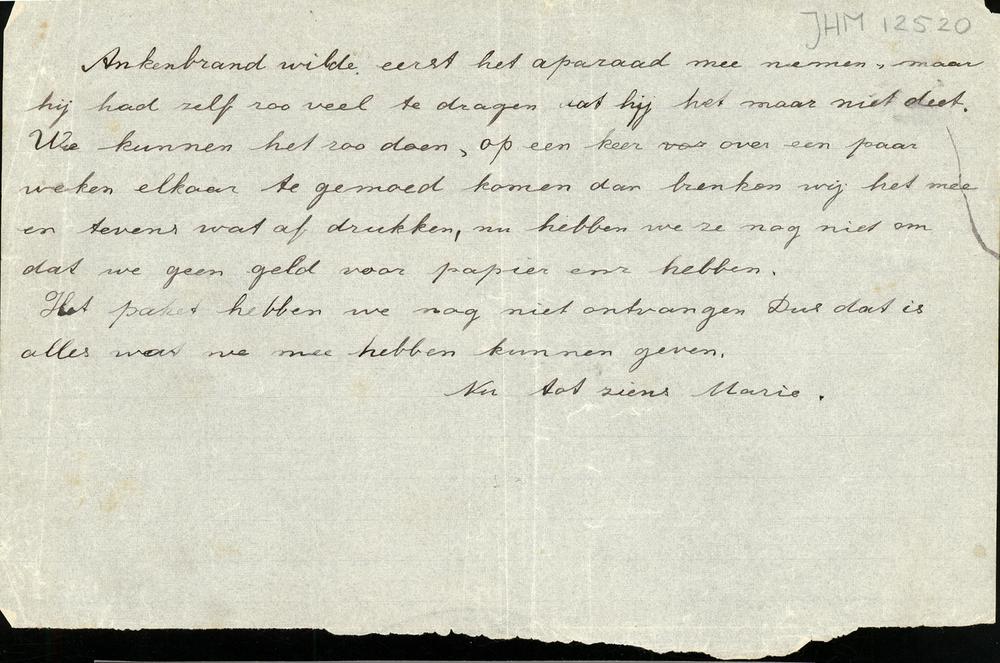 JHM 12520
Ankenbrand wilde eerst het aparaad mee nemen, maar
hij had zelf zoo veel te dragen dat hij het maar niet deet.
We kunnen het zoo doen, op een keer voor over een paar
weken elkaar te gemoed komen dan brenken wij het mee
en tevens wat af drukken, nu hebben we ze nog niet om
dat we geen geld voor papier enz hebben.
Het paket hebben we nog niet ontvangen Dus dat is
alles wat we mee hebben kunnen geven.
Nu tot ziens Marie.